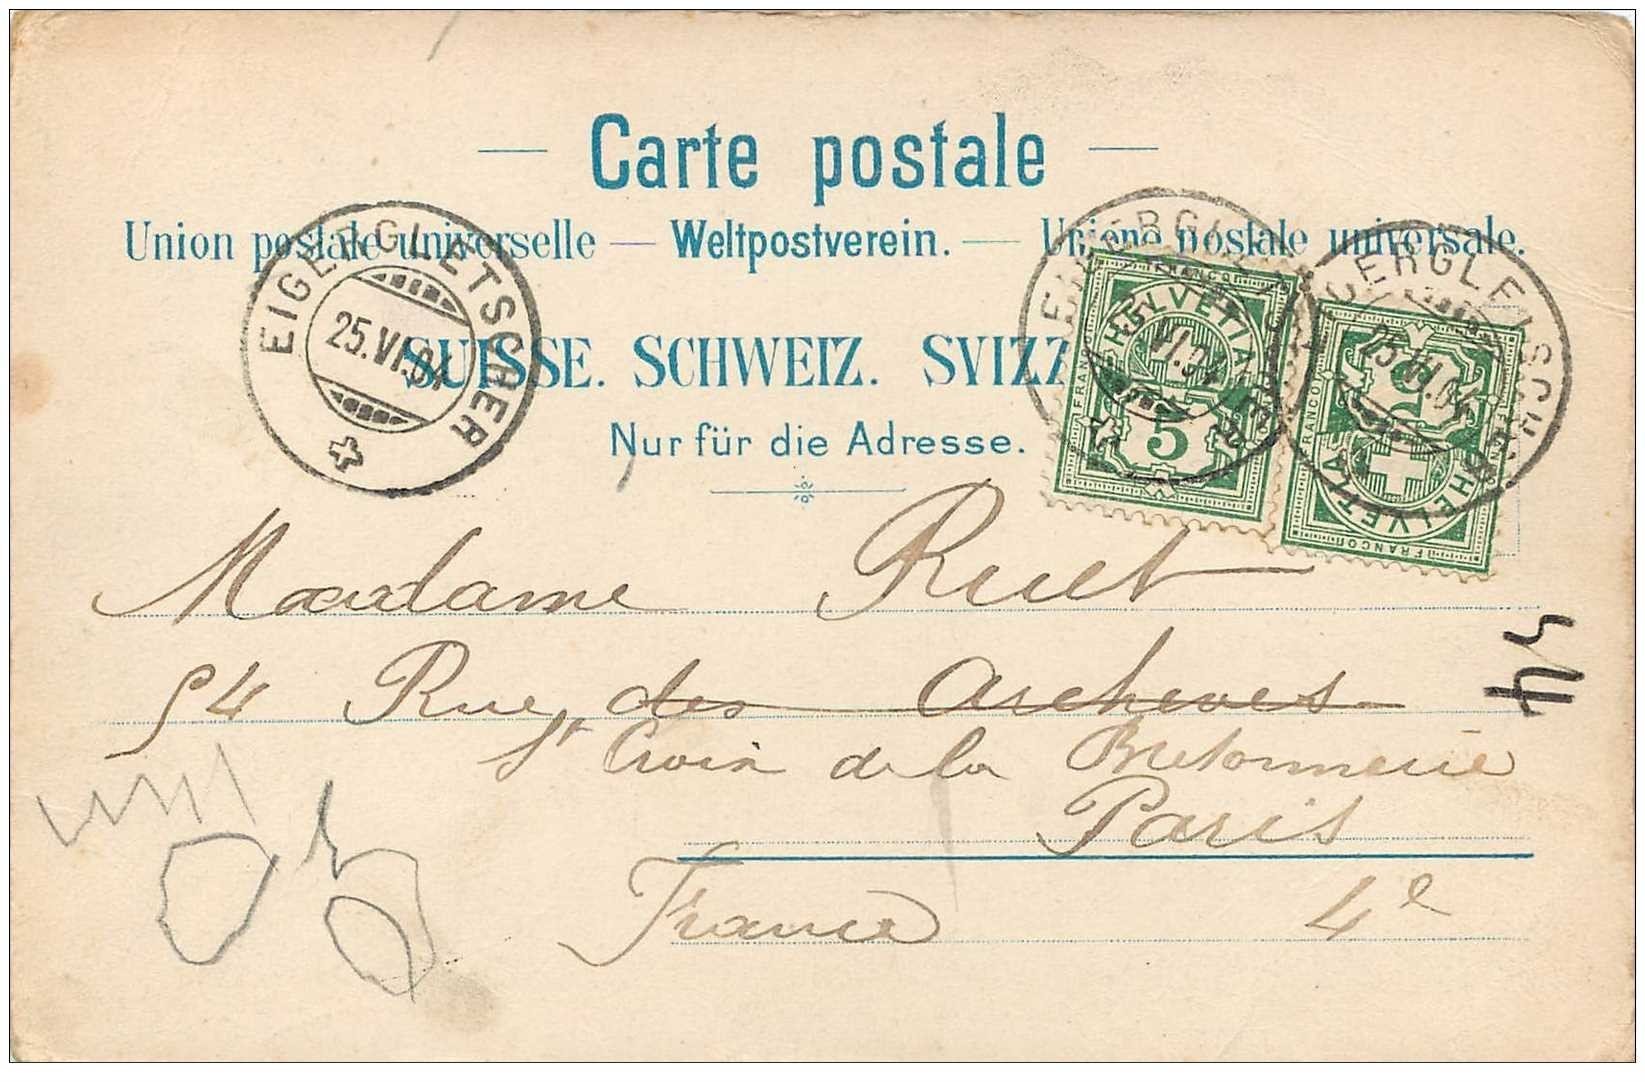 Carte postale
Union postale universelle — Weltpostverein. — Unione postale universale.
EIGERGLETSCHER
25.VI.04
EIGERGLETSCHER
VI.04
EIGERGLETSCHER
25.VI.04
FRANCO
HELVETIA
FRANCO
5
FRANCO
5
HELVETIA
FRANCO
SUISSE. SCHWEIZ. SVIZZ
Nur für die Adresse.
Madame Ruet
54 Rue des Archives
St Croix de la Bretonnerie
Paris
France 4e